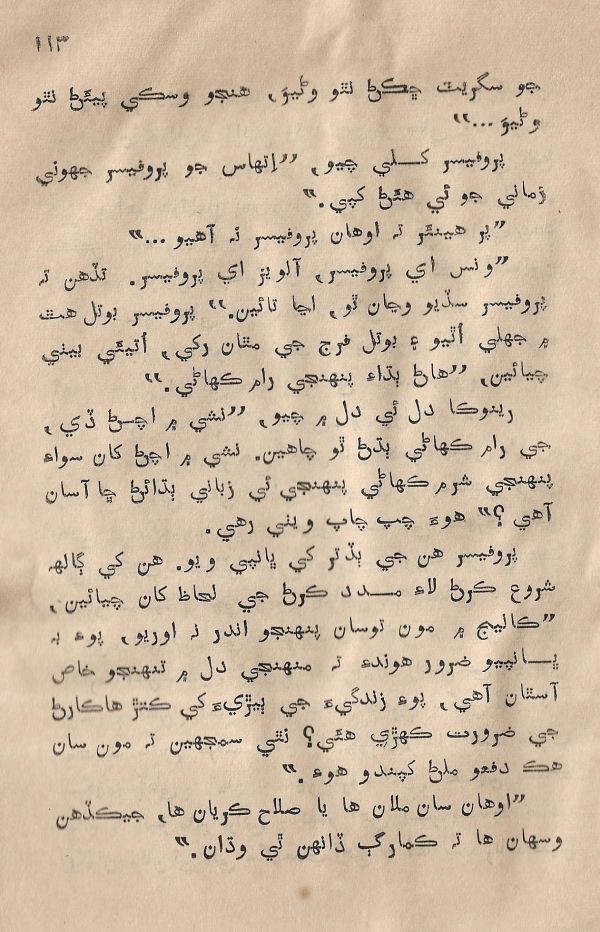 ١١٣
جو سگريٽ ڇڪڻ نٿو وڻيوَ, هنجو وسڪي پيئڻ نٿو
وڻيوَ ...“
پروفيسر کلي چيو, ”اِتهاس جو پروفيسر جهوني
زماني جو ئي هئڻ کپي.“
”پر هينئر تہ اوهان پروفيسر نہ آهيو ...“
”ونس اي پروفيسر, آلويز اي پروفيسر. تڏهن تہ
پروفيسر سڏيو وڃان ٿو, اڃا تائين.“ پروفيسر بوتل هٿ
۾ جهلي اُٿيو ۽ بوتل فرج جي مٿان رکي, اُتيئي بيٺي
چيائين, ”هاڻ ٻڌاءِ پنهنجي رام ڪهاڻي.“
رينوڪا دل ئي دل ۾ چيو, ”نشي ۾ اچڻ ڏي,
جي رام ڪهاڻي ٻڌڻ ٿو چاهين. نشي ۾ اچڻ کان سواءِ
پنهنجي شرم ڪهاڻي پنهنجي ئي زباني ٻڌائڻ ڇا آسان
آهي ؟“ هوءَ چپ چاپ ويٺي رهي.
پروفيسر هن جي ٻڏتر کي ڀانپي ويو. هن کي ڳالهہ
شروع ڪرڻ لاءِ مدد ڪرڻ جي لحاظ کان چيائين,
”ڪاليج ۾ مون توسان پنهنجو اندر نہ اوريو, پوءِ بہ
ڀانپيو ضرور هوندءِ تہ منهنجي دل ۾ تنهنجو خاص
آسٿان آهي, پوءِ زندگيءَ جي ٻيڙيءَ کي ڪنڙ هاڪارڻ
جي ضرورت ڪهڙي هئي؟ نٿي سمجهين تہ مون سان
هڪ دفعو ملڻ کپندو هوءِ.“
”اوهان سان ملان ها يا صلاح ڪريان ها, جيڪڏهن
وسهان ها تہ ڪمارگ ڏانهن ٿي وڌان.“